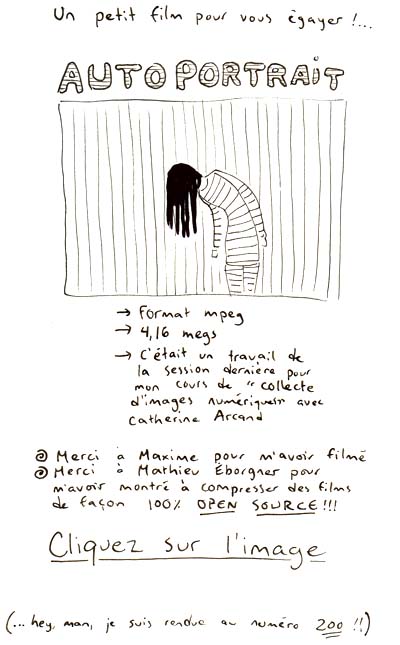 Un petit film pour vous égayer !...
AUTOPORTRAiT
→ Format mpeg
→ 4,16 megs
→ C'était un travail de
la session dernière pour
mon cours de "collecte
d'images numériques" avec
Catherine Arcand
Merci à Maxime pour m'avoir filmé
Merci à Mathieu Éborgner pour
m'avoir montré à compresser des films
de façon 100% OPEN SOURCE!!!
Cliquez sur l'image
(... hey, man, je suis rendue au numéro 200 !!)